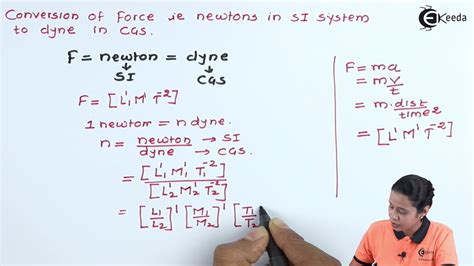 Conversion of Force ie newtons in SI system
to dyne in CGS.
Ekeeda
F = newton = dyne
↓ ↓
SI CGS
F = [L¹M¹T⁻²]
1 newton = n dyne.
n = newton → SI
dyne → CGS.
= [L₁¹ M₁¹ T₁⁻²]
[L₂¹ M₂¹ T₂⁻²]
= [L₁/L₂]¹ [M₁/M₂]¹ [T₁/T₂
F = ma
= m v/t
= m. dist/time²
= [L¹M¹T⁻²]